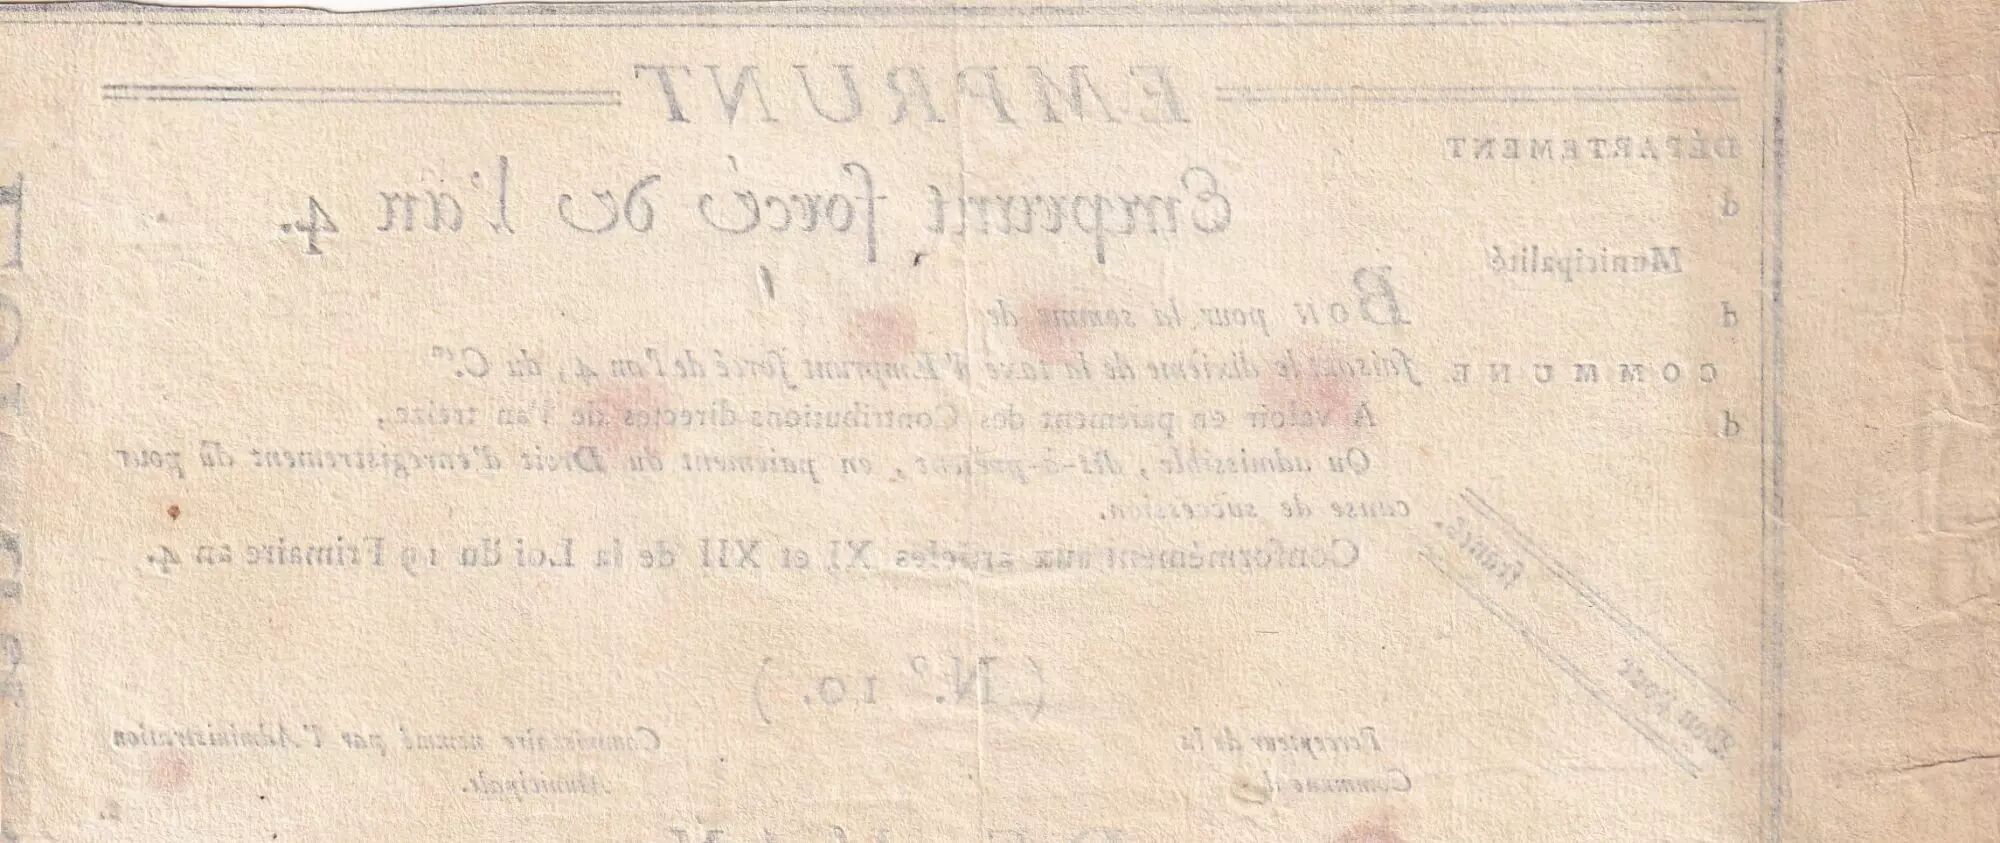 EMPRUNT
DÉPARTEMENT
d
Emprunt forcé de l'an 4.
Municipalité
d
BON pour la somme de
COMMUNE
faisant le dixième de la taxe d'Emprunt forcé de l'an 4, du C.en
d
A valoir en paiement des Contributions directes de l'an treize,
Ou admissible, dès-à-présent, en paiement du Droit d'enregistrement dû pour
cause de succession.
Conformément aux articles XI et XII de la Loi du 19 Frimaire an 4.
Bon pour francs.
( N.º 10. )
Percepteur de la
Commune d
Commissaire nommé par l'Administration
Municipale.